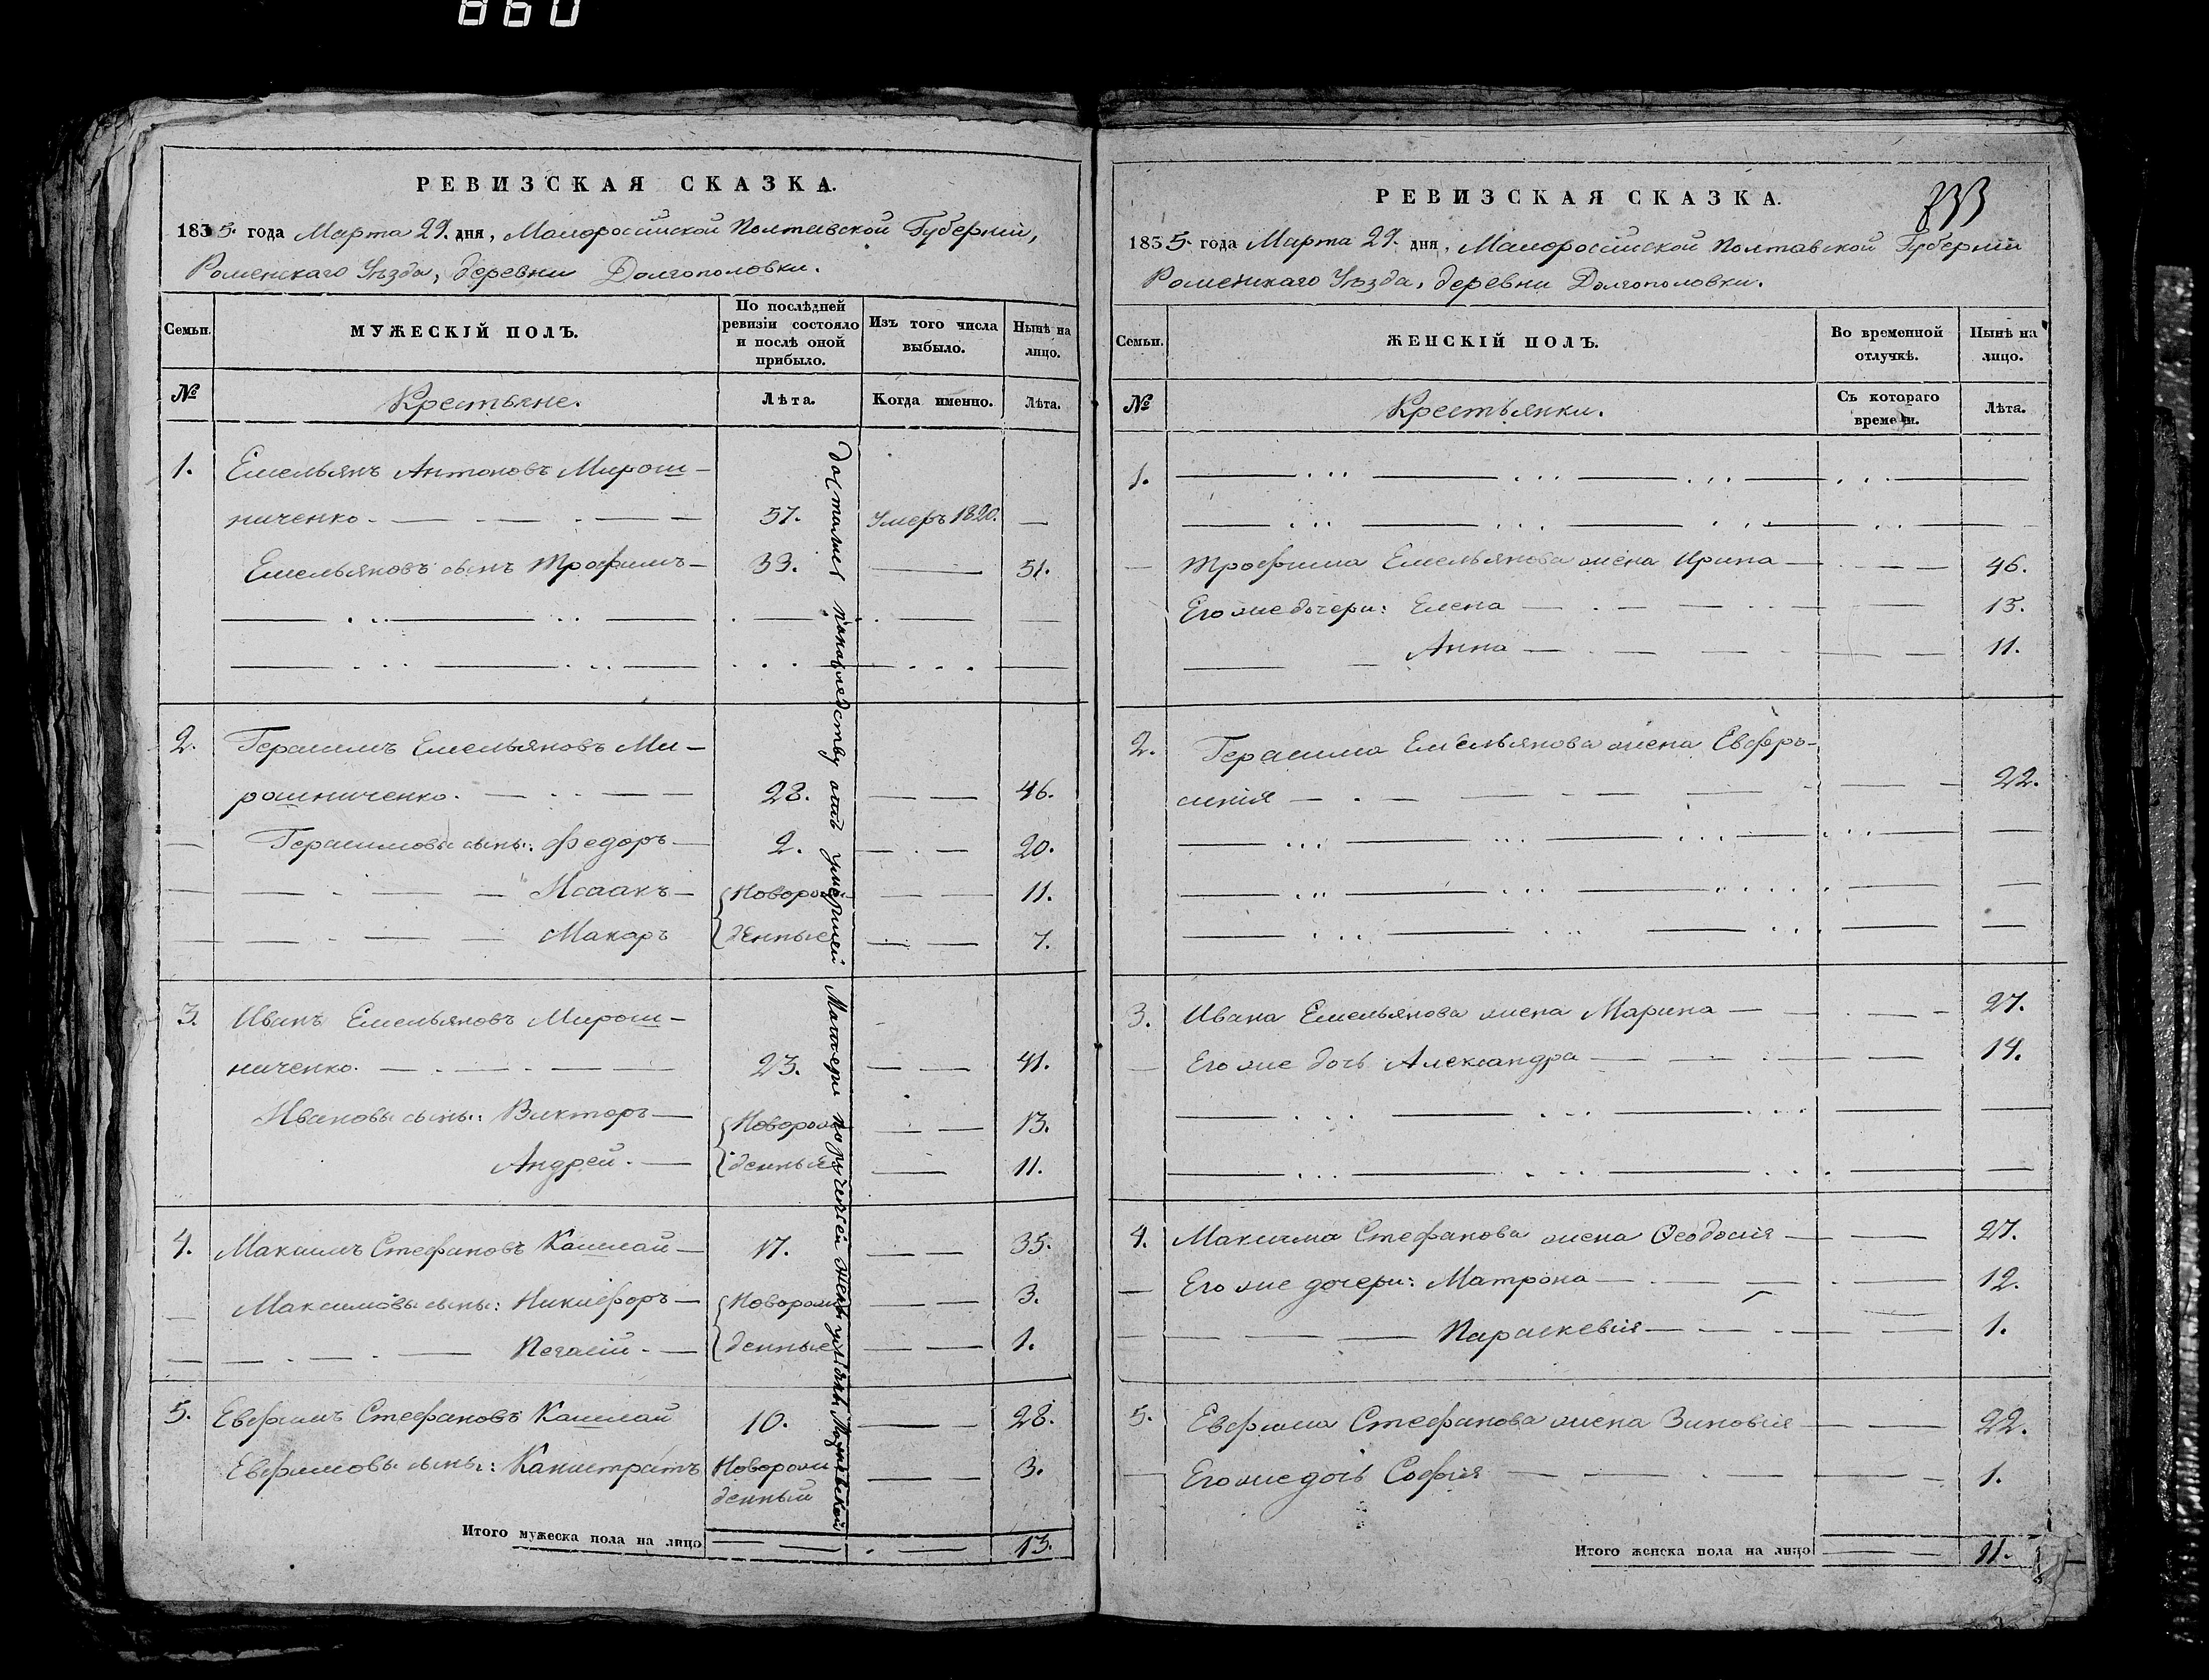 860
РЕВИЗСКАЯ СКАЗКА.
1835. года Марта 29. дня, Малоросiйской Полтавской Губернiи,
Роменскаго Уѣзда, деревни Долгополовки.
Семьи.
МУЖЕСКIЙ ПОЛЪ.
По послѣдней ревизiи состояло и послѣ оной прибыло.
Изъ того числа выбыло.
Нынѣ на лицо.
№ Крестьяне. Лѣта. Когда именно. Лѣта.
1. Емельянъ Антоновъ Мирош-
ниченко. 57. Умеръ 1820. —
Емельяновъ сынъ Трофимъ 33. — 51.
2. Герасимъ Емельяновъ Ми-
рошниченко. 28. — 46.
Герасимовы сыны: Федоръ 2. — 20.
Исаакъ Новорож- — 11.
Макаръ денные — 7.
3. Иванъ Емельяновъ Мирош-
ниченко. 23. — 41.
Ивановы сыны: Викторъ Новорож- — 13.
Андрей. денные — 11.
4. Максимъ Стефановъ 17. — 35.
Максимовы сыны: Никифоръ Новорож — 3.
денные — 1.
5. Евфимъ Стефановъ 10. — 28.
Евфимовы сыны: Новорож — 3.
денный
Итого мужеска пола на лицо 13.
достался по наслѣдству отъ умершей Матери
РЕВИЗСКАЯ СКАЗКА.
1835. года Марта 29. дня, Малоросiйской Полтавской Губернiи
Роменскаго Уѣзда, деревни Долгополовки.
Семьи.
ЖЕНСКIЙ ПОЛЪ.
Во временной отлучкѣ.
Нынѣ на лицо.
№ Крестьянки. Съ котораго времени. Лѣта.
1.
Трофима Емельянова жена Ирина 46.
Его же дочери: Елена 15.
Анна 11.
2. Герасима Емельянова жена Евфро-
синiя 22.
3. Ивана Емельянова жена Марина 27.
Его же дочь Александра 14.
4. Максима Стефанова жена Ѳеодосiя 27.
Его же дочери: Матрона 12.
Параскевiя 1.
5. Евфима Стефанова жена Зиновiя 22.
Его же дочь Софiя 1.
Итого женска пола на лицо 11.